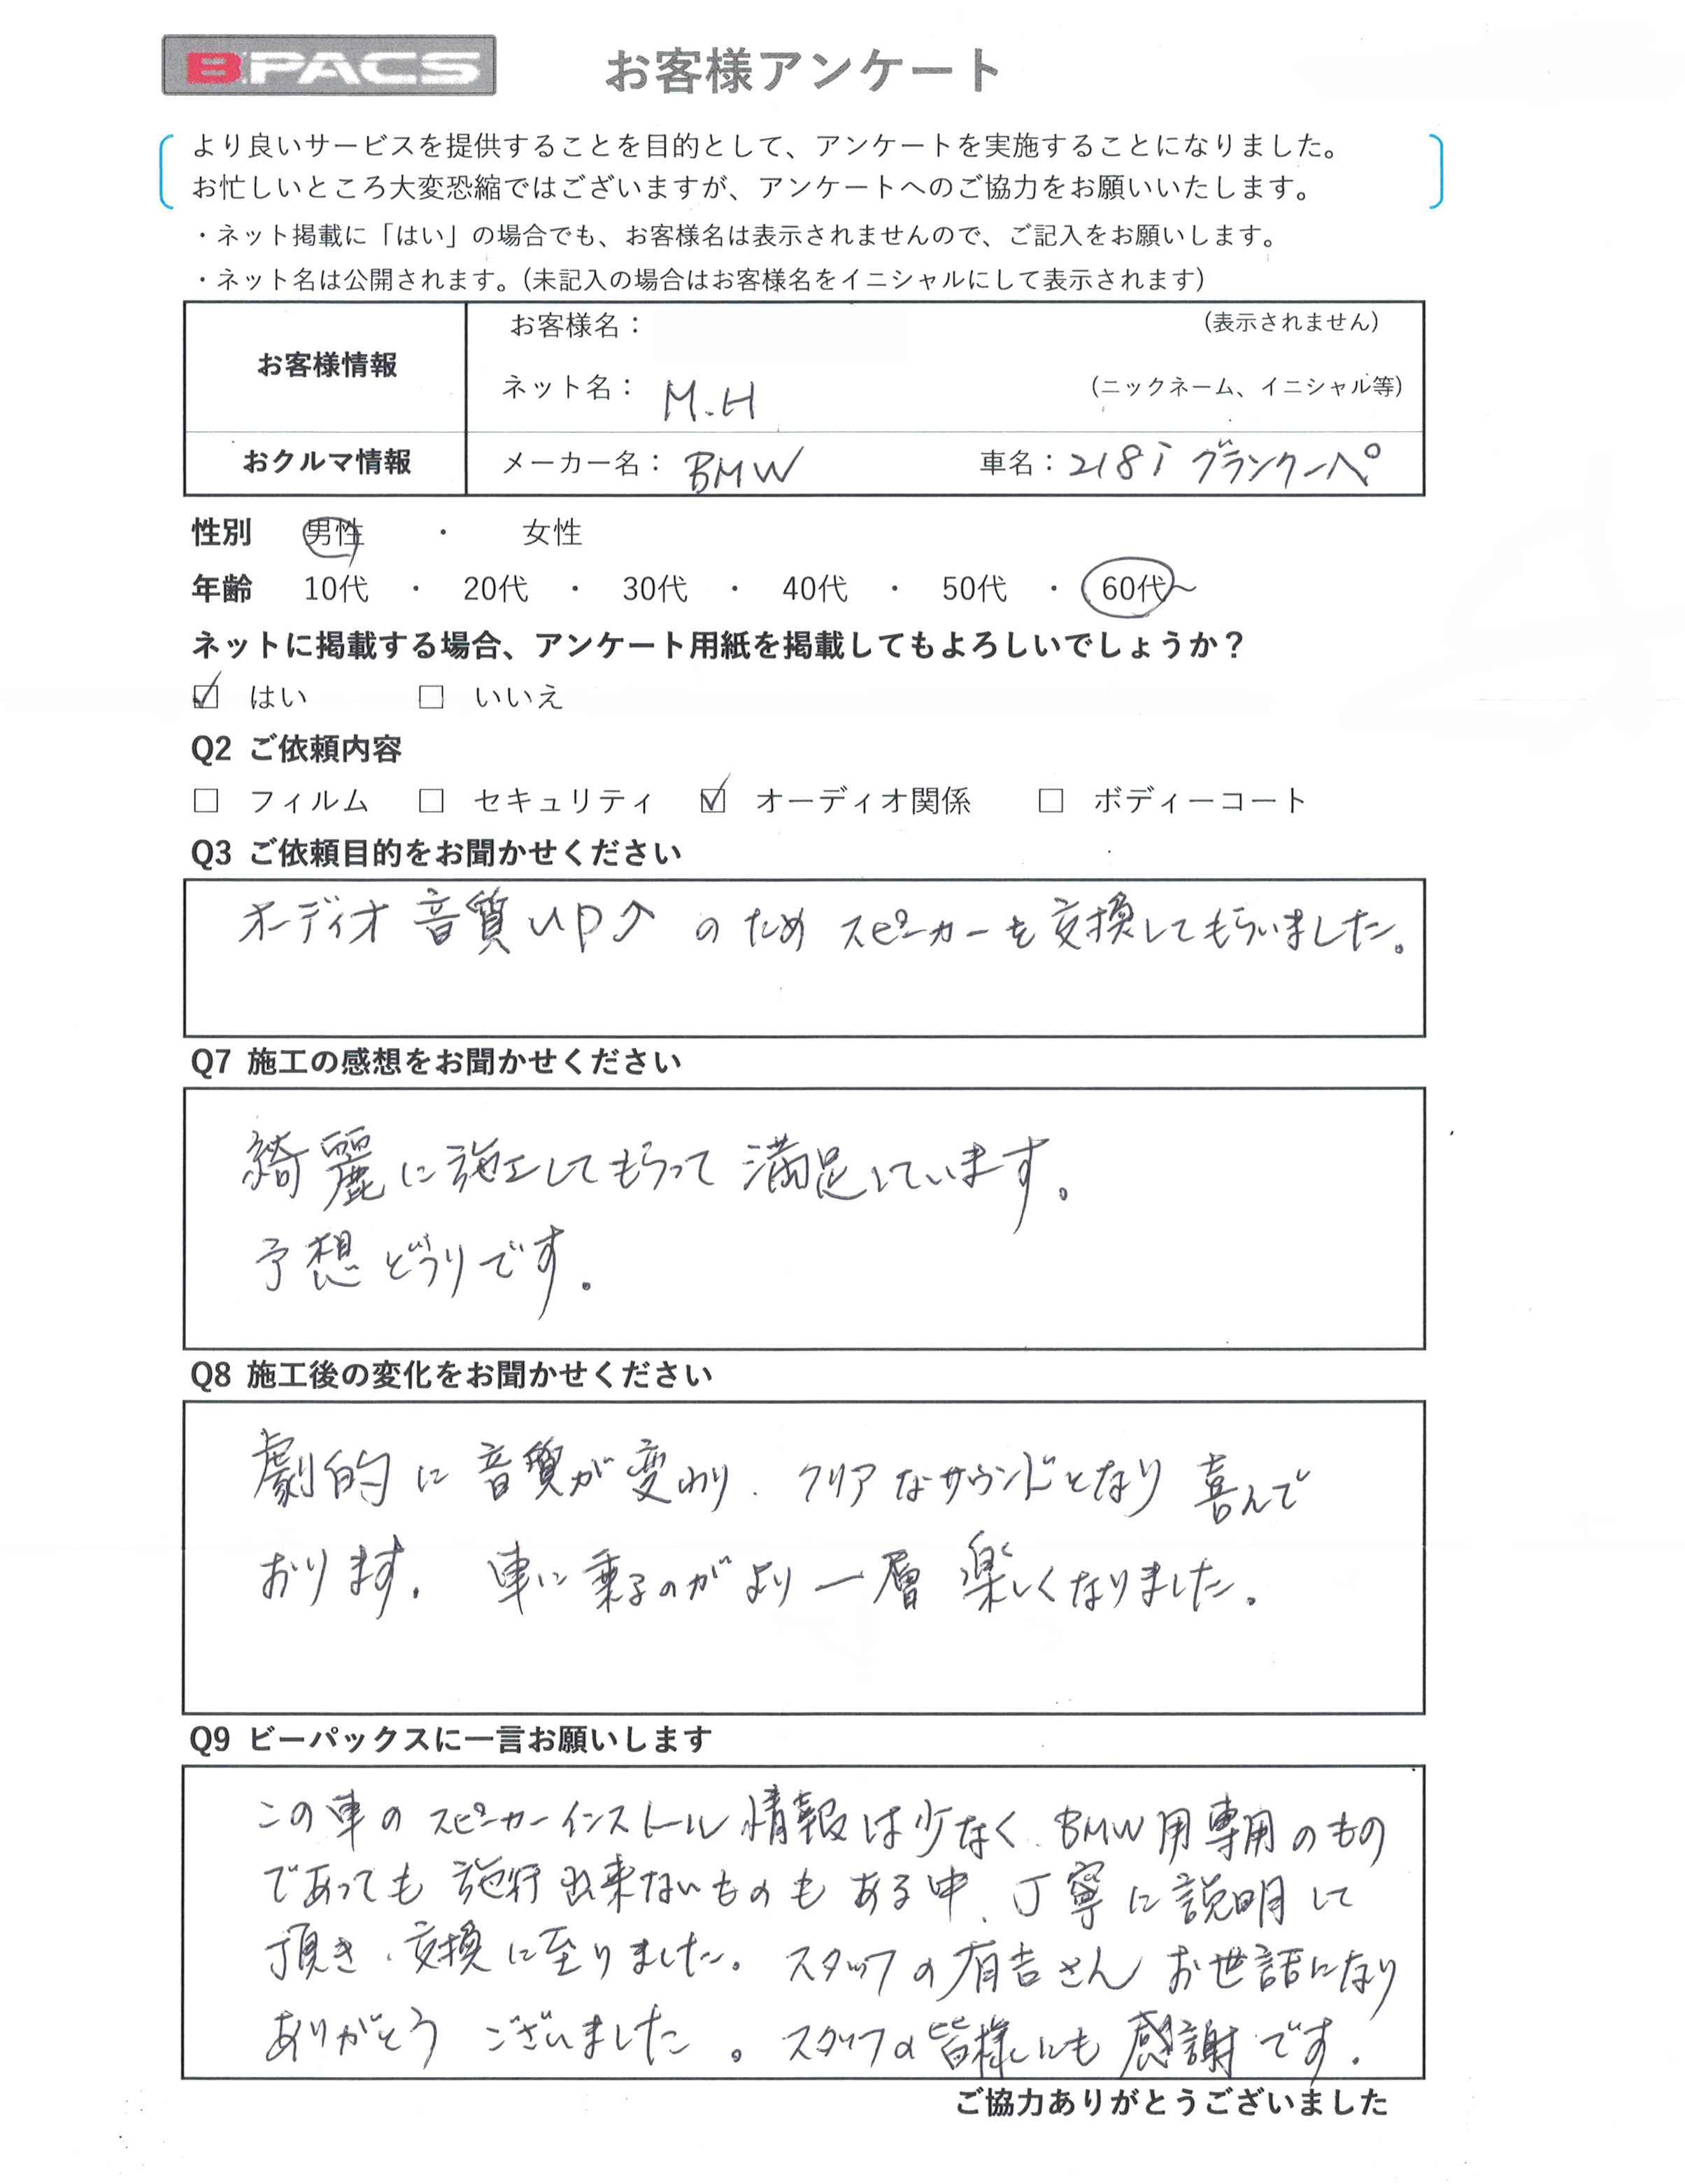 B.PACS お客様アンケート
より良いサービスを提供することを目的として、アンケートを実施することになりました。
お忙しいところ大変恐縮ではございますが、アンケートへのご協力をお願いいたします。
・ネット掲載に「はい」の場合でも、お客様名は表示されませんので、ご記入をお願いします。
・ネット名は公開されます。(未記入の場合はお客様名をイニシャルにして表示されます)
お客様情報
お客様名： (表示されません)
ネット名： M.H (ニックネーム、イニシャル等)
おクルマ情報 メーカー名： BMW 車名：218i グランクーペ
性別 男性 ・ 女性
年齢 10代 ・ 20代 ・ 30代 ・ 40代 ・ 50代 ・ 60代～
ネットに掲載する場合、アンケート用紙を掲載してもよろしいでしょうか？
☑ はい □ いいえ
Q2 ご依頼内容
□ フィルム □ セキュリティ ☑ オーディオ関係 □ ボディーコート
Q3 ご依頼目的をお聞かせください
オーディオ 音質UP↗ のため スピーカーを交換してもらいました。
Q7 施工の感想をお聞かせください
綺麗に施工してもらって 満足しています。
予想どうりです。
Q8 施工後の変化をお聞かせください
劇的に音質が変わり、クリアなサウンドとなり 喜んで
おります。 車に乗るのがより一層 楽しくなりました。
Q9 ビーパックスに一言お願いします
この車のスピーカーインストール情報は少なく、BMW用専用のもの
であっても施行出来ないものもある中、丁寧に説明して
頂き、交換に至りました。スタッフの有吉さん お世話になり
ありがとう ございました。スタッフの皆様にも感謝です。
ご協力ありがとうございました